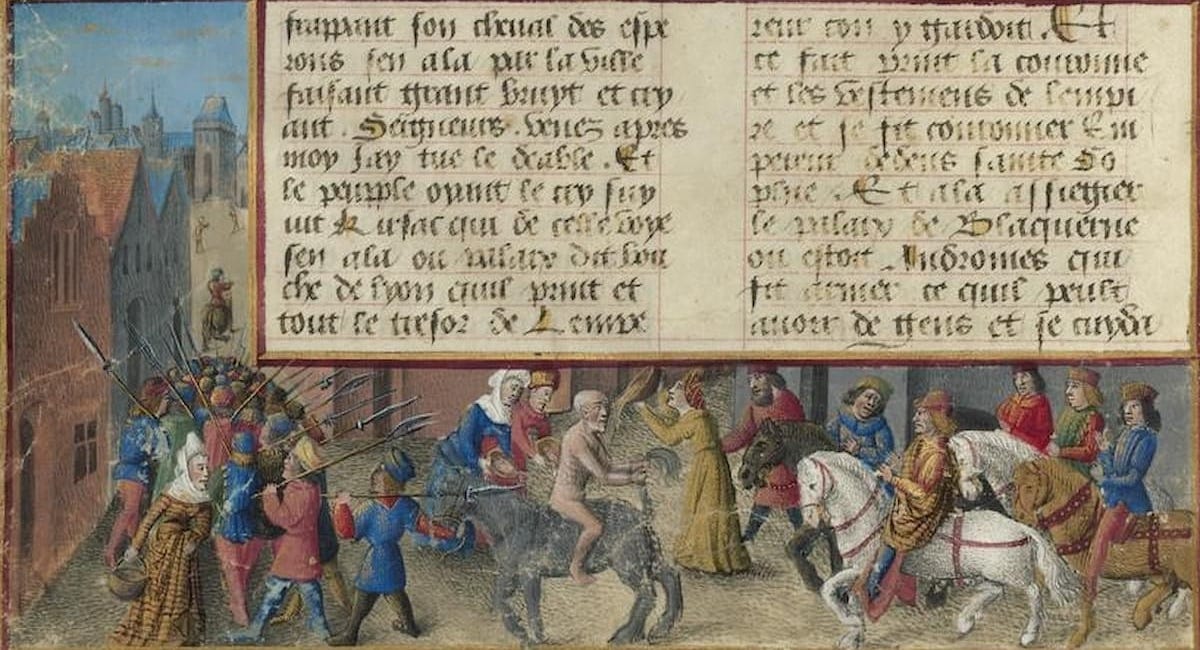 frappant son cheual des espe
rons sen ala par la ville
faisant grant bruyt et cry
ant . Seigneurs . venez apres
moy Jay tue le deable . Et
le peuple oyant le cry suy
uit Kursac qui de celle voye
sen ala ou palaix dit bou
che de lyon quil print et
tout le tresor de Lempe
reur con y gardoit . Et
ce fait print la couronne
et les vestemens de lempi
re et se fit couronner Em
pereur dedens sainte So
phie . Et ala assiegier
le palaix de Blaquerne
ou estoit Andromes qui
fit armer ce quil peust
auoir de gens et se cuyda